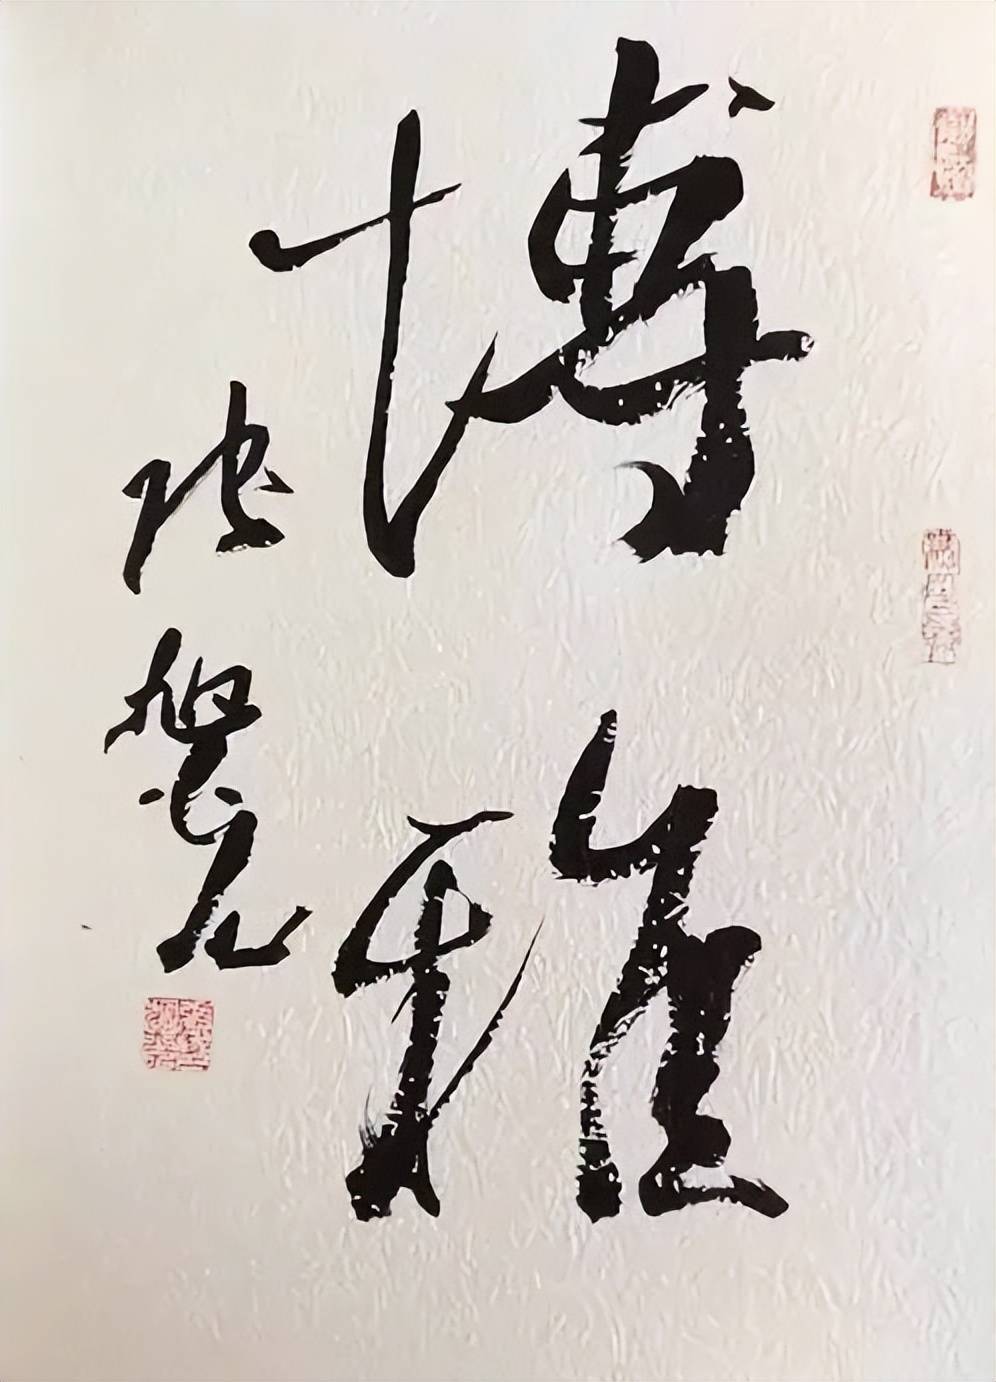 博雅
张旭光